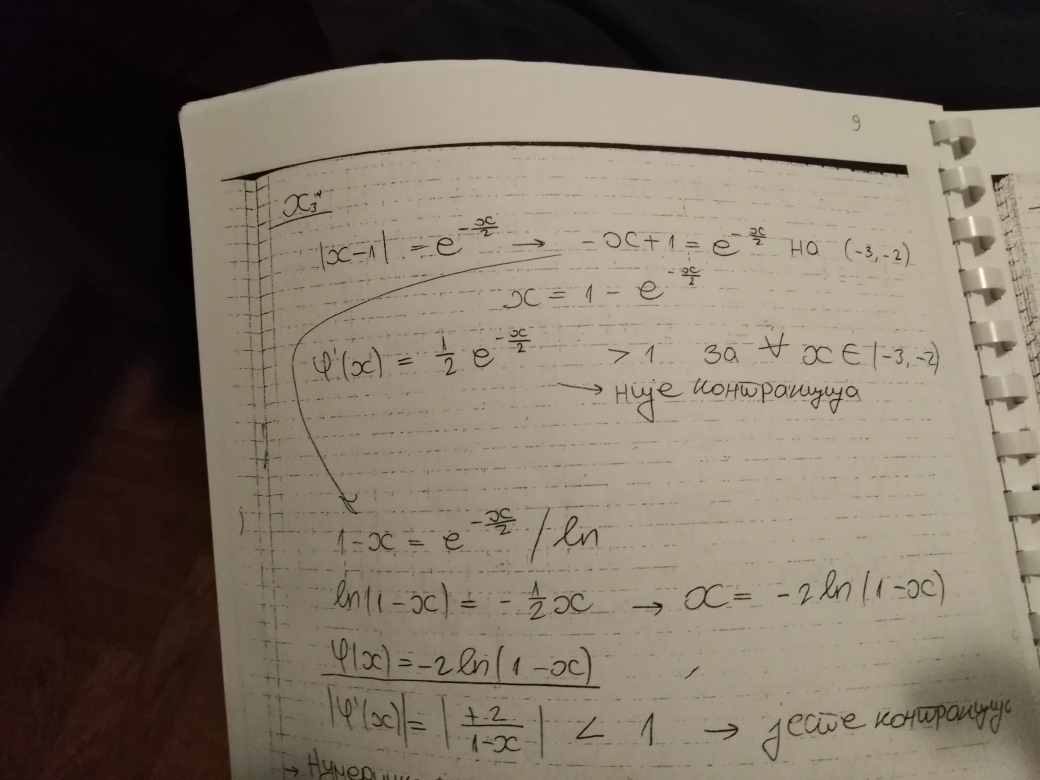 9
x₃*
|x-1| = e^{-x/2} → -x+1 = e^{-x/2} на (-3,-2)
x = 1 - e^{-x/2}
φ'(x) = 1/2 e^{-x/2} > 1 за ∀ x ∈ (-3,-2)
→ није контракција
1-x = e^{-x/2} / ln
ln(1-x) = -1/2 x → x = -2 ln(1-x)
φ(x) = -2 ln(1-x)
|φ'(x)| = |+2/(1-x)| < 1 → јесте контракција
→